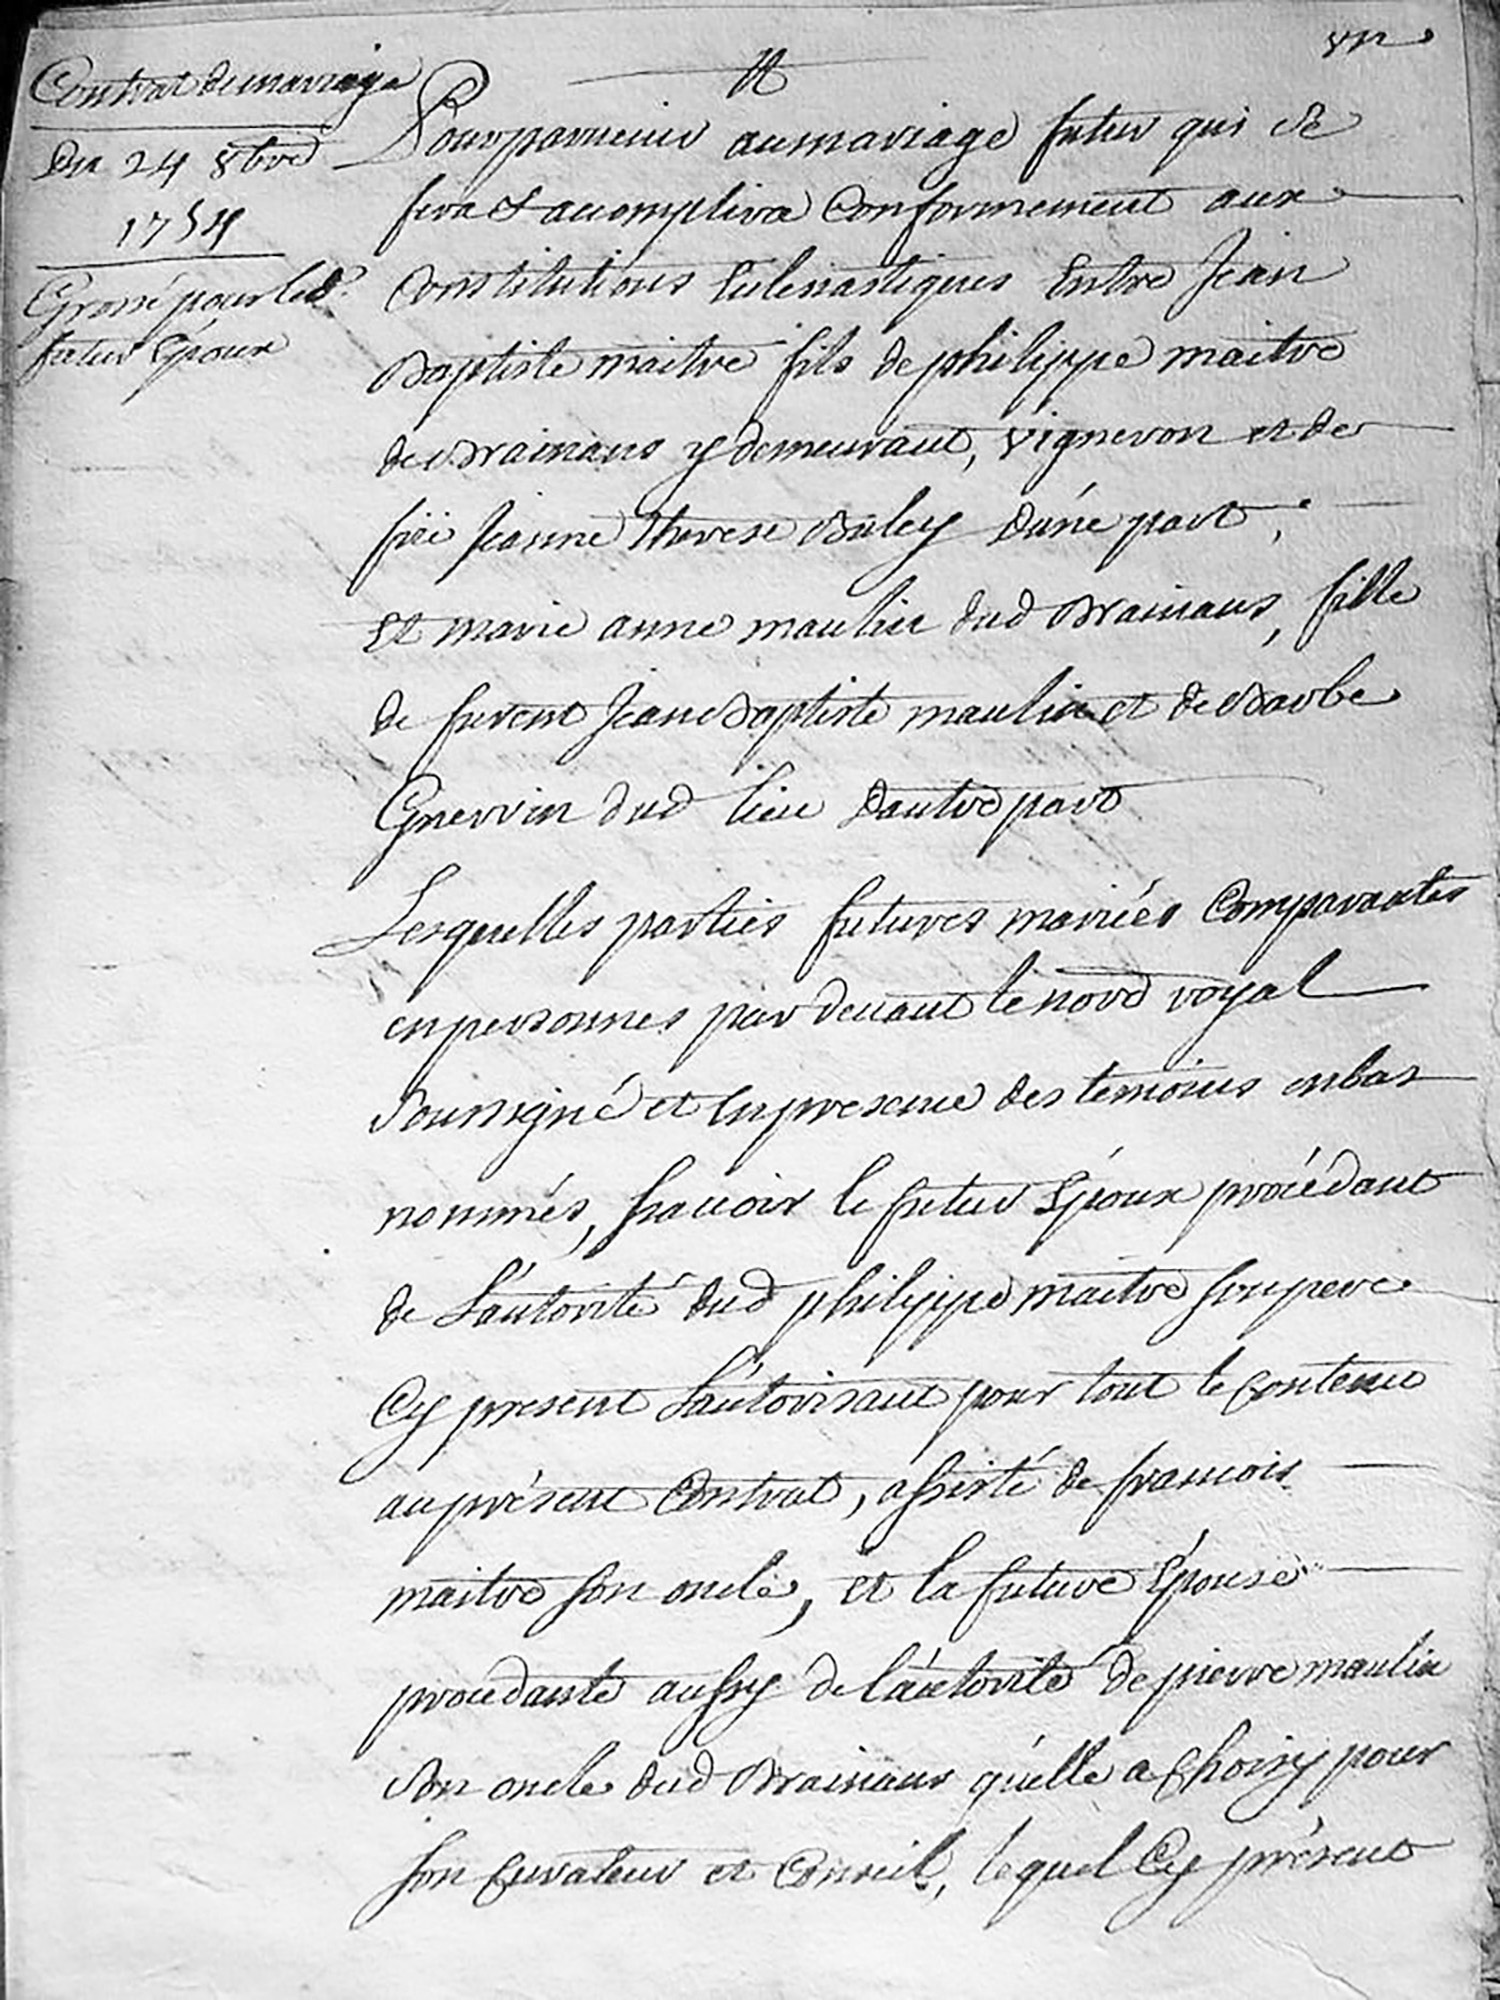 Contrat de mariage
Du 24 8bre
1754
Grossé pour led.
futur Epoux
Pour parvenir au mariage futur qui se
fera & accomplira Conformement aux
Constitutions Eclesiastiques Entre Jean
Baptiste maitre fils de philippe maitre
de Brainans y demeurant, vigneron et de
füe Jeanne Therese Buley d'une part,
Et marie anne maulin dud Brainans, fille
de furent Jean Baptiste maulin et de Barbe
Guerrin dud lieu d'autre part
Lesquelles parties futures mariées Comparantes
en personnes par devant le nore royal
Soussigné et En presence des temoins enbas
nommés, scavoir le futur Epoux procédant
de L'autorité dud philippe maitre son pere
Cy present L'autorisant pour tout le contenu
au présent Contrat, assisté de francois
maitre son oncle, et la future Epouse
procedante aussy de l'autorité de pierre maulin
Son oncle dud Brainans qu'elle a Choisy pour
son Curateur et Conseil, lequel Cy présent